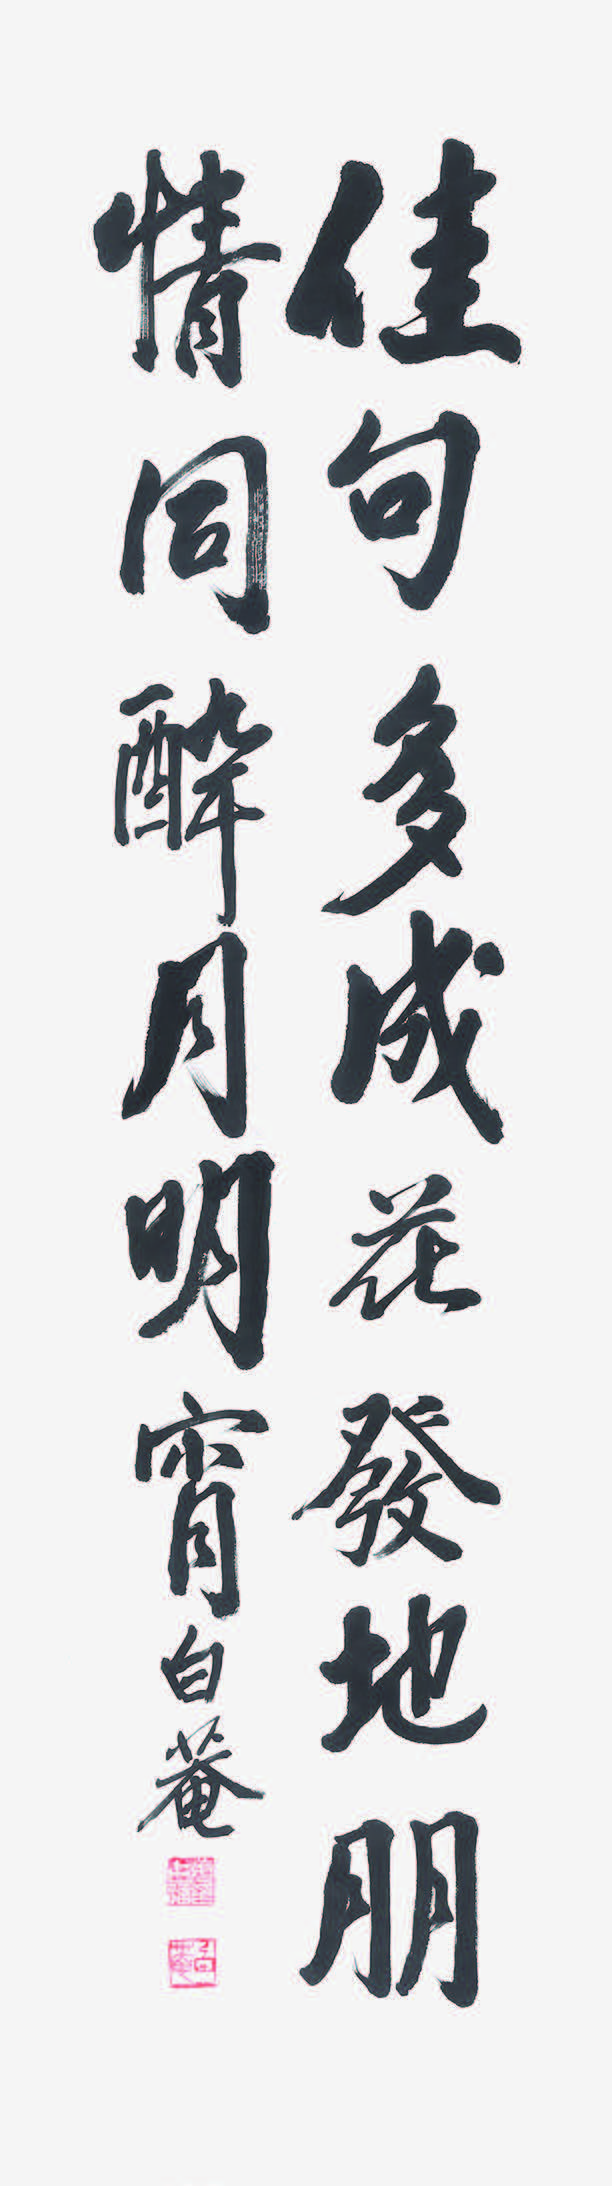 佳句多成花發地朋
情同醉月明宵白菴